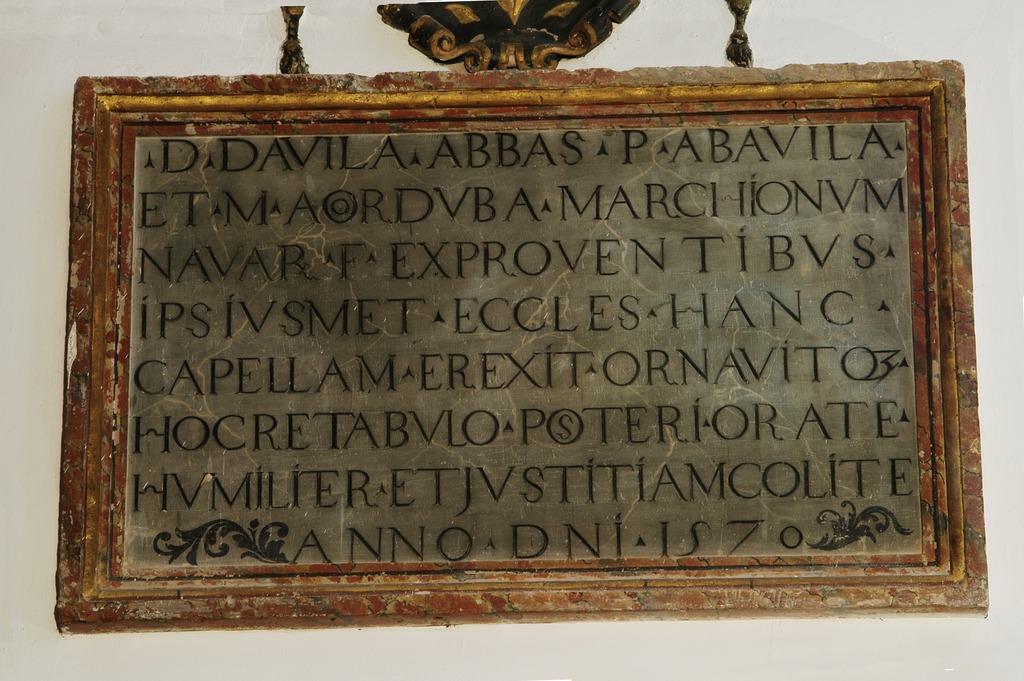 ▴D▴DAVILA▴ABBAS▴P▴ABAVILA▴
ET▴M▴ACORDVBA▴MARCHIONVM
NAVAR▴F▴EXPROVENTIBVS▴
IPSIVSMET▴ECCLES▴HANC▴
CAPELLAM▴EREXIT▴ORNAVITQ3▴
HOCRETABVLO▴POSTERI▴ORATE▴
HVMILITER▴ETJVSTITIAMCOLITE
ANNO▴DNI▴1570